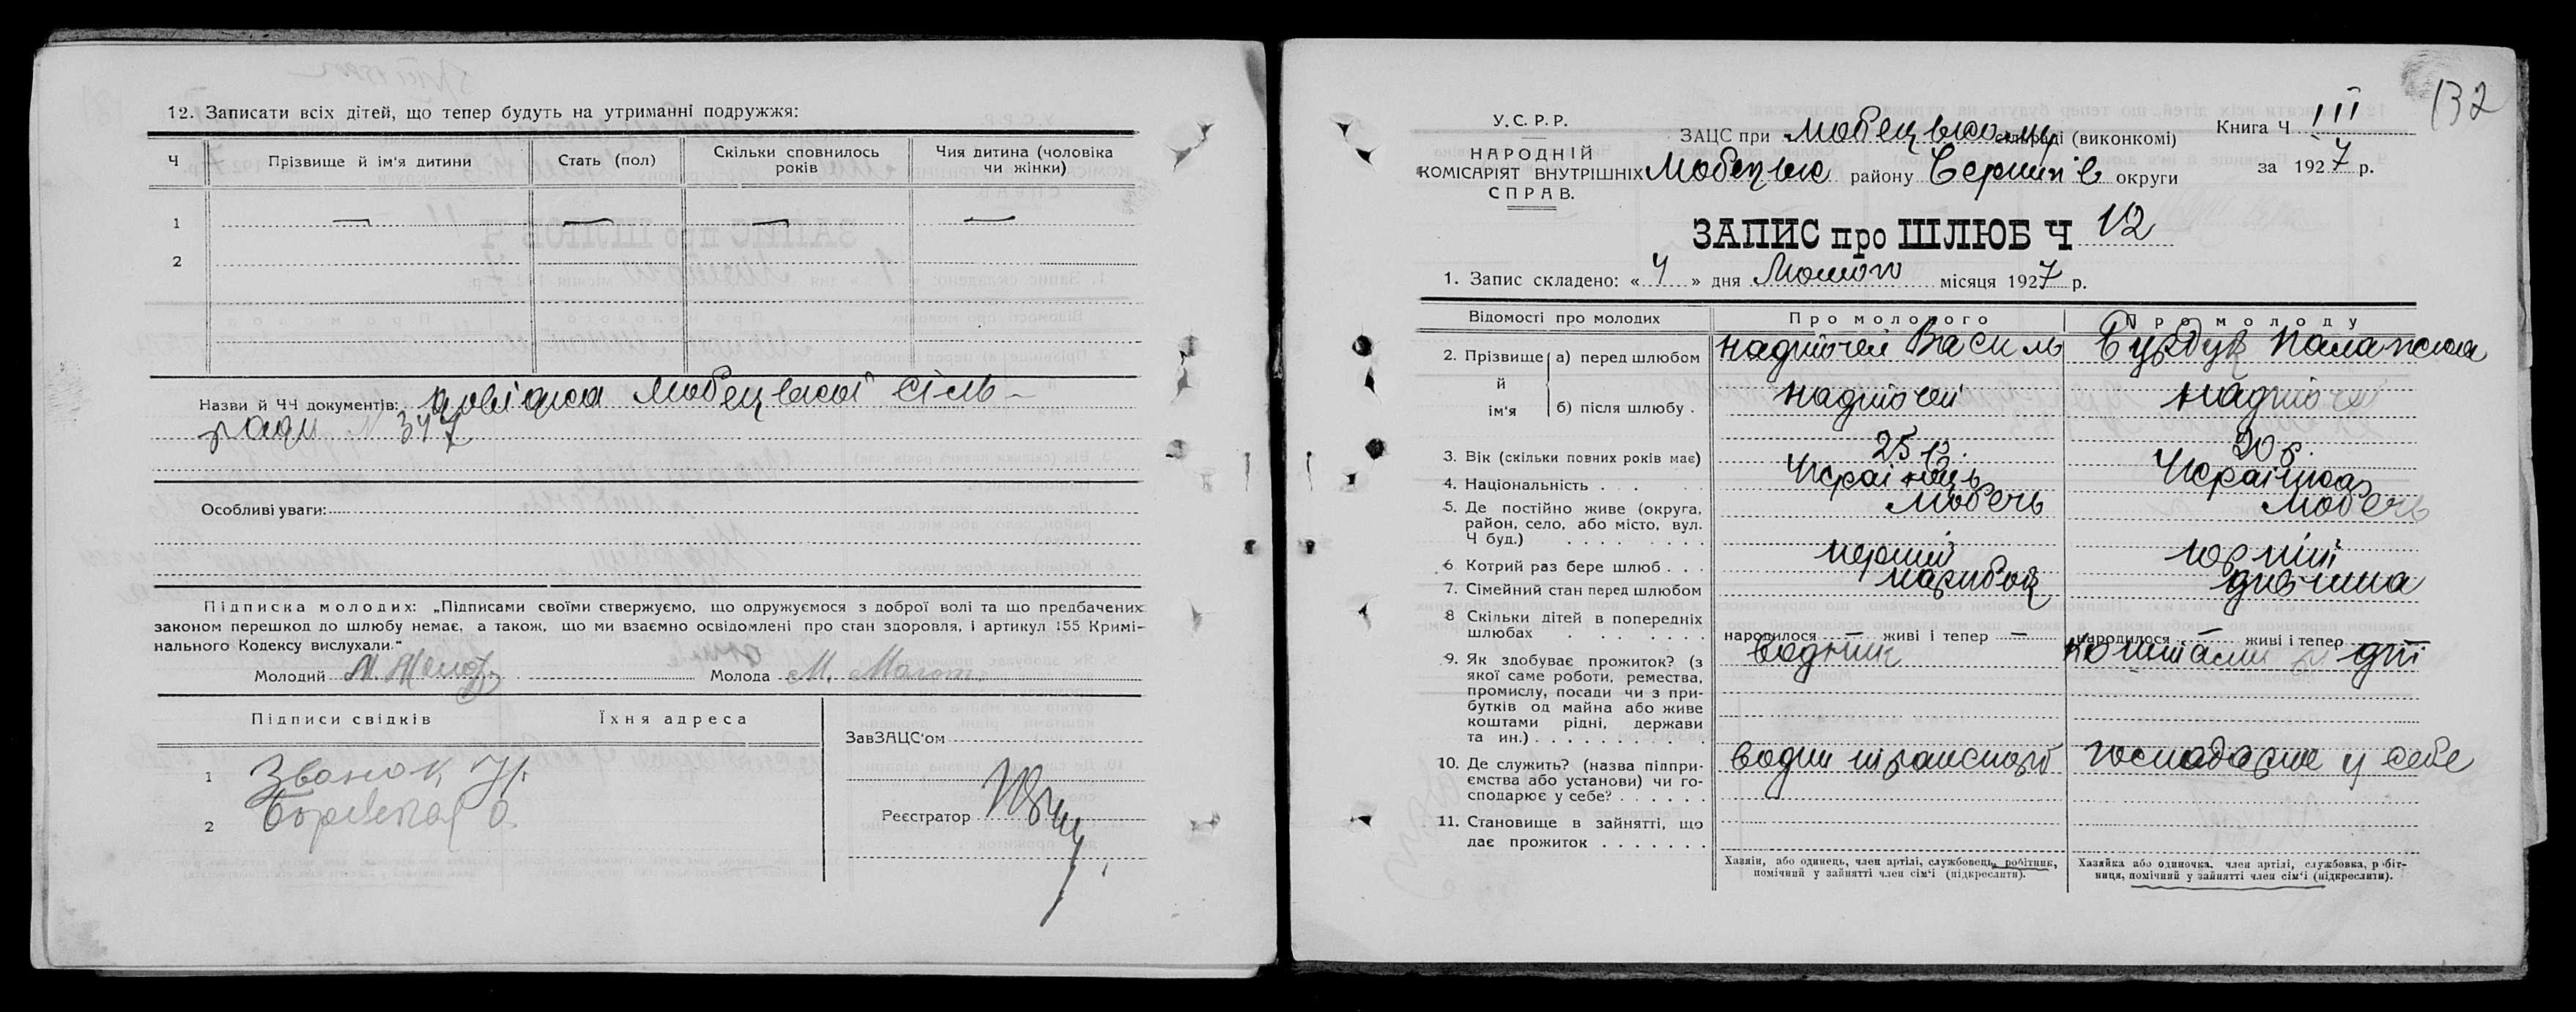 12. Записати всіх дітей, що тепер будуть на утриманні подружжя:
Ч Прізвище й ім'я дитини Стать (пол) Скільки сповнилось років Чия дитина (чоловіка чи жінки)
1 — — — —
2
Назви й ЧЧ документів: довідка Любецької сіль-
ради N 347
Особливі уваги:
Підписка молодих: „Підписами своїми стверджуємо, що одружуємося з доброї волі та що предбачених
законом перешкод до шлюбу немає, а також, що ми взаємно освідомлені про стан здоровля, і артикул 155 Кримі-
нального Кодексу вислухали."
Молодий Молода М.
Підписи свідків Їхня адреса
ЗавЗАЦС'ом
1 Званок
2 Боровская О.
Реєстратор
132
У.С.Р.Р.
НАРОДНІЙ
КОМІСАРІЯТ ВНУТРІШНІХ
СПРАВ.
ЗАЦС при Любецькому сільраді (виконкомі)
Любецьк району Черниг ів округи
Книга Ч III
за 1927 р.
ЗАПИС про ШЛЮБ Ч 12
1. Запис складено: « 4 » дня Лютого місяця 1927 р.
Відомості про молодих Про молодого Про молоду
2. Прізвище й ім'я а) перед шлюбом Надточей Василь Бурдук Палажка
б) після шлюбу . Надточей Надточей
3. Вік (скільки повних років має) 25 р. 20 р.
4. Національність . . . Українець Українка
5. Де постійно живе (округа, Любеч Любеч
район, село, або місто, вул.
Ч буд.) . . . . . . . .
6. Котрий раз бере шлюб . . . перший перший
7. Сімейний стан перед шлюбом парубок дівчина
8 Скільки дітей в попередніх
шлюбах . . . . . . . народилося — живі і тепер — народилося — живі і тепер —
9. Як здобуває прожиток? (з водник коштами
якої саме роботи, ремества,
промислу, посади чи з при-
бутків од майна або живе
коштами рідні, держави
та ин.) . . . . . . . . . .
10. Де служить? (назва підпри- водни транспорт господарює у себе
ємства або установи) чи го-
сподарює у себе? . . . . . .
11. Становище в зайнятті, що
дає прожиток . . . . . . .
Хазяїн, або одинець, член артілі, службовець, робітник,
помічний у зайнятті член сім'ї (підкреслити).
Хазяйка або одиночка, член артілі, службовка, робіт-
ниця, помічний у зайнятті член сім'ї (підкреслити).